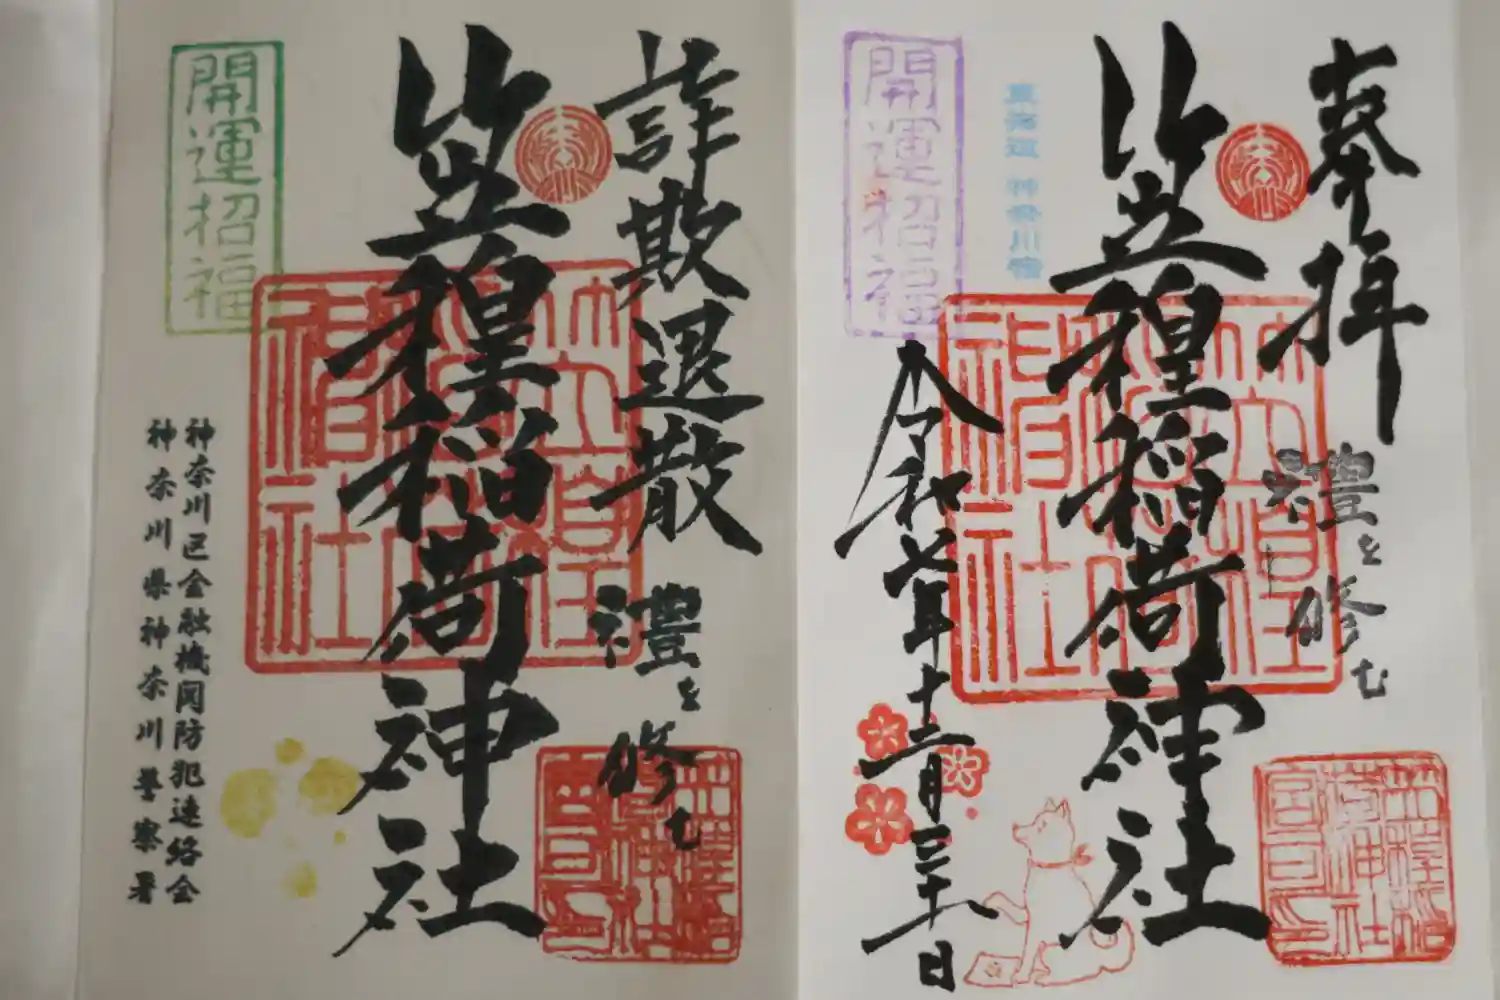 奉拝
禮を修む
笠䅣稲荷神社
東海道 神奈川宿
令和七年十二月三十一日
開運招福
笠䅣稲荷神社
詐欺退散
禮を修む
笠䅣稲荷神社
開運招福
神奈川区金融機関防犯連絡会
神奈川県神奈川警察署
笠䅣稲荷神社